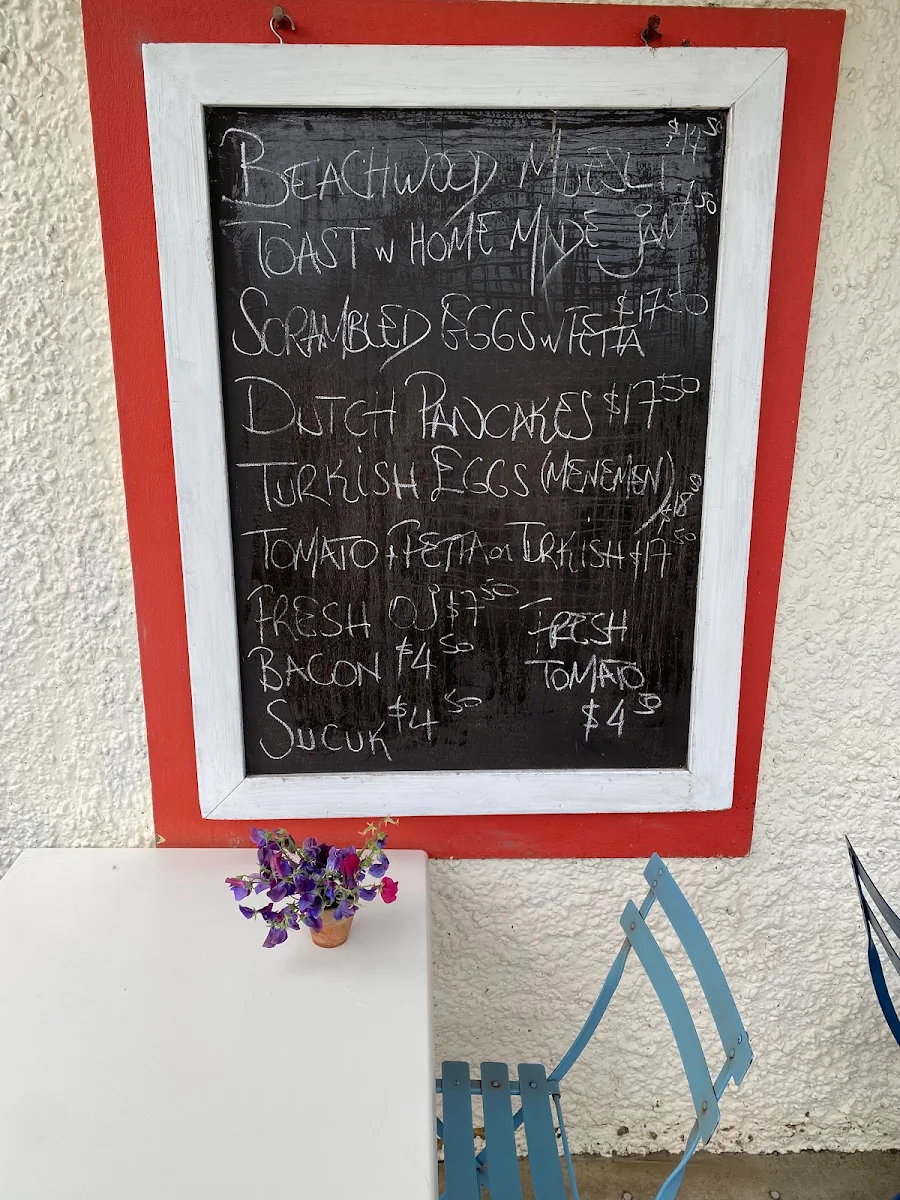 BEACHWOOD MUESLI $14 50
TOAST w HOME MADE JAM 7 50
SCRAMBLED EGGS w FETTA $17 50
DUTCH PANCAKES $17 50
TURKISH EGGS (MENEMEN) $18 50
TOMATO + FETTA on TURKISH $17 50
FRESH OJ $7 50
BACON $4 50
SUCUK $4 50
FRESH
TOMATO
$4 50